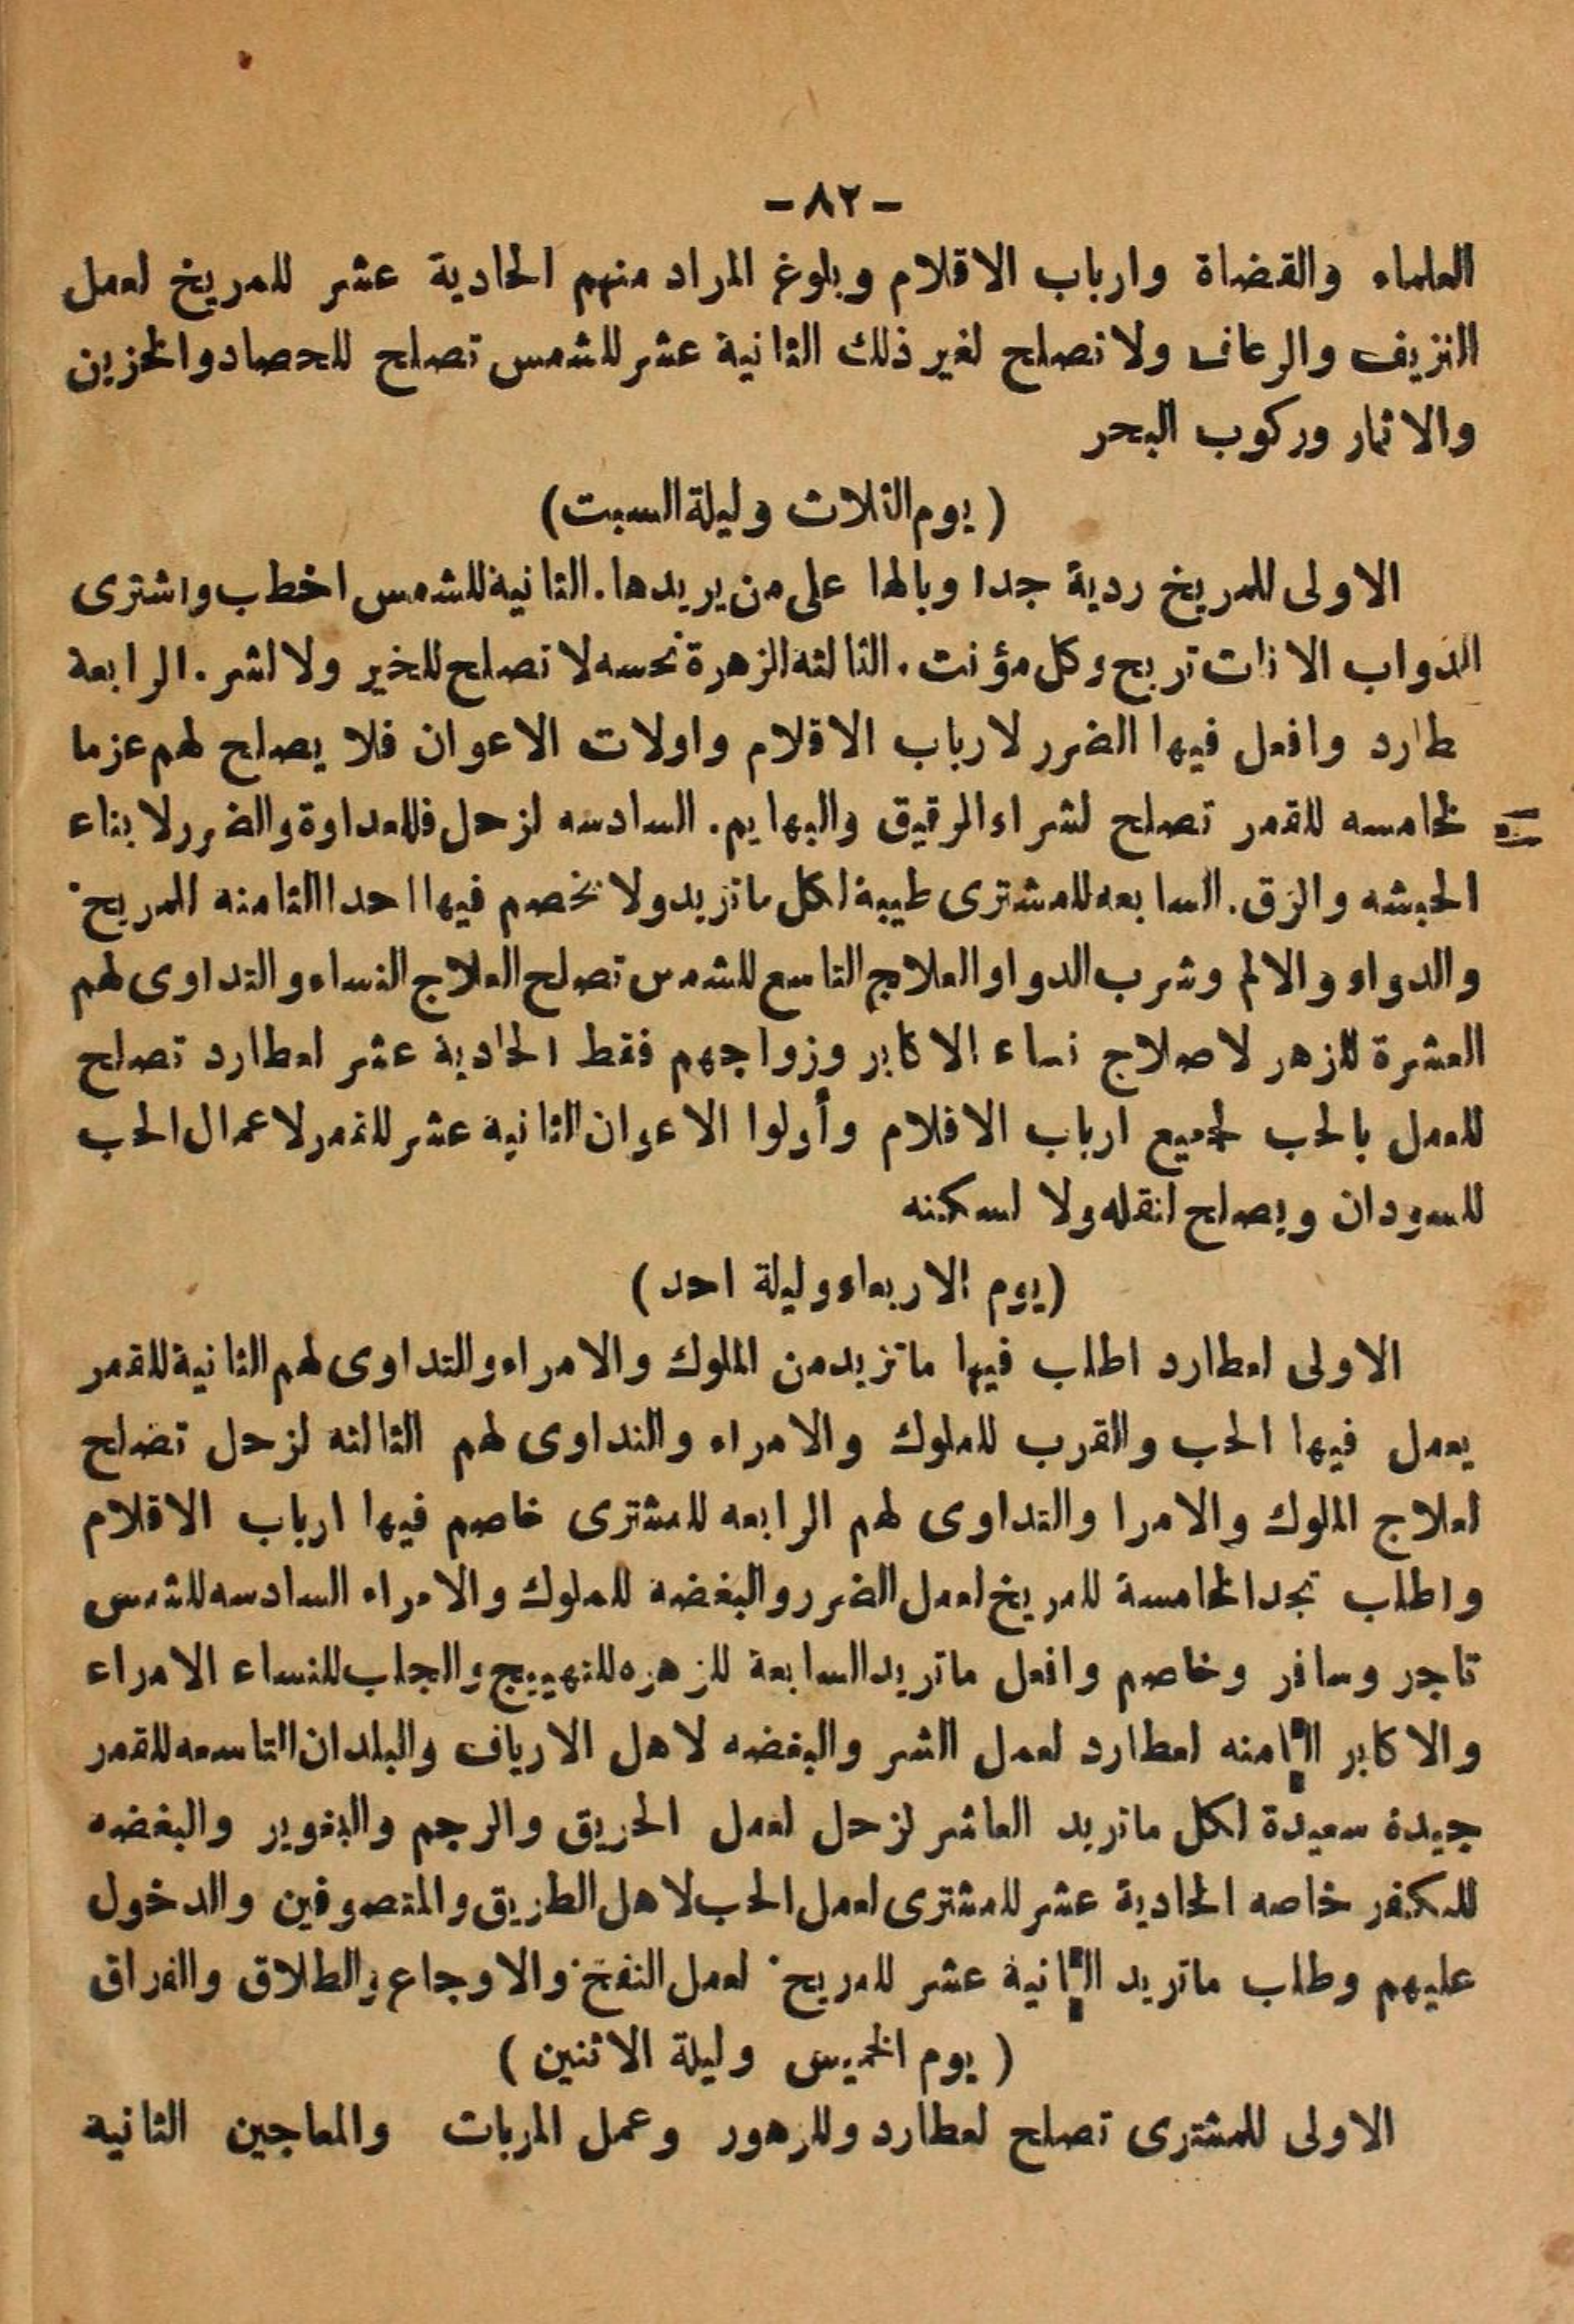 -٨٢-
العلماء والقضاة وارباب الاقلام وبلوغ المراد منهم الحادية عشر للمريخ لعمل
النزيف والرعاف ولا تصلح لغير ذلك الثانية عشر للشمس تصلح للحصاد والخزين
والاثمار وركوب البحر
( يوم الثلاث وليلة السبت)
الاولى للمريخ ردية جدا وبالها على من يريدها . الثانية للشمس اخطب واشترى
الدواب الاناث تربح وكل مؤنث . الثالثه الزهرة نحسه لا تصلح للخير ولا لشر . الرابعة
طارد وافعل فيها الضرر لارباب الاقلام واولات الاعوان فلا يصلح لهم عزما
لخامسه للقمر تصلح لشراء الرقيق والبهايم . السادسه لزحل فللعداوة والضرر لابناء
الحبشه والزق . السابعه للمشترى طيبة لكل ما تريد ولا تخصم فيها احدا الثامنه المريخ
والدواء والالم وشرب الدوا والعلاج التاسع للشمس تصلح العلاج النساء والتداوى لهم
العشرة للزهر لاصلاج نساء الاكابر وزواجهم فقط الحادية عشر لعطارد تصلح
للعمل بالحب لجميع ارباب الاقلام وأولوا الاعوان الثانية عشر للقمر لاعمال الحب
للسودان ويصلح لنقله ولا لسكنه
(يوم الاربعاء وليلة احد )
الاولى لعطارد اطلب فيها ما تريد من الملوك والامراء والتداوى لهم الثانية للقمر
يعمل فيها الحب والقرب للملوك والامراء والتداوى لهم الثالثه لزحل تصلح
لعلاج الملوك والامرا والتداوى لهم الرابعه للمشترى خاصم فيها ارباب الاقلام
واطلب تجد الخامسة للمريخ لعمل الضرر والبغضه للملوك والامراء السادسه للشمس
تاجر وسافر وخاصم وافعل ما تريد السابعة للزهره للتهييج والجلب للنساء الامراء
والاكابر الثامنه لعطارد لعمل الشر والبغضه لاهل الارياف والبلدان التاسعه للقمر
جيدة سعيدة لكل ما تريد العاشر لزحل لعمل الحريق والرجم والتغوير والبغضه
للكفر خاصه الحادية عشر للمشترى لعمل الحب لاهل الطريق والمتصوفين والدخول
عليهم وطلب ما تريد الثانية عشر للمريخ لعمل النفخ والاوجاع والطلاق والفراق
( يوم الخميس وليلة الاثنين )
الاولى للمشترى تصلح لعطارد وللزهور وعمل المربات والمعاجين الثانية